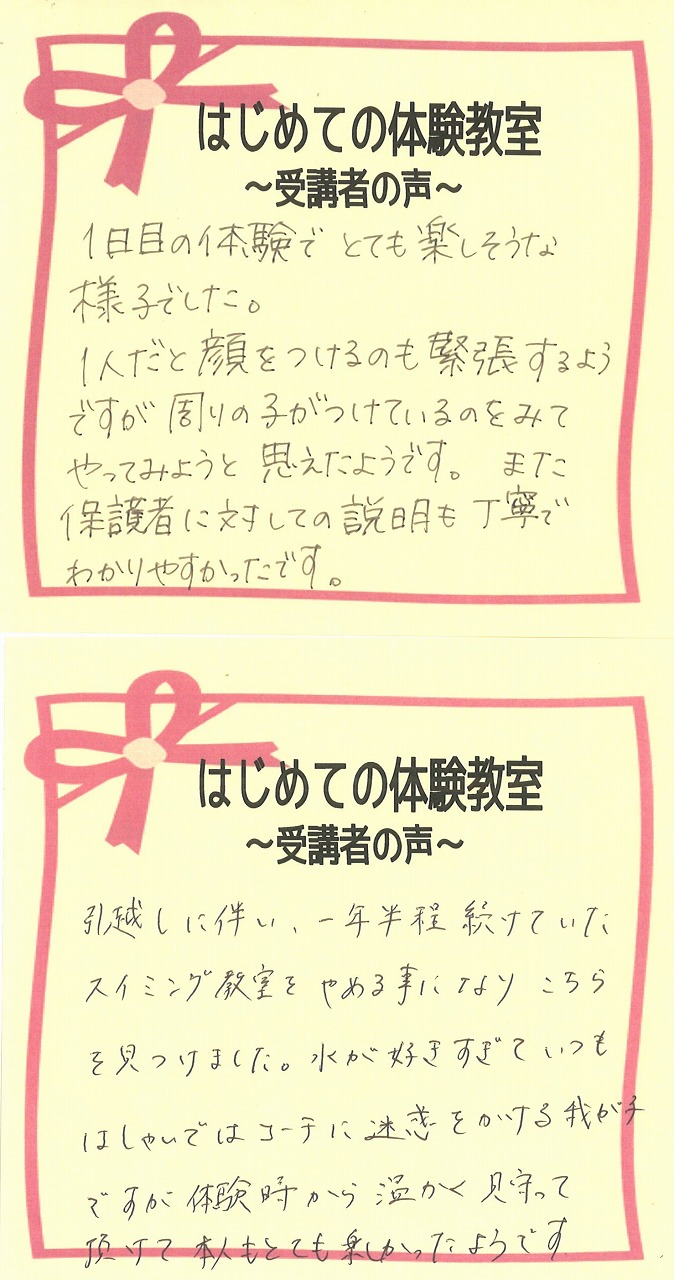 はじめての体験教室
～受講者の声～
1日目の体験で とても楽しそうな
様子でした。
1人だと顔をつけるのも緊張するよう
ですが 周りの子がつけているのをみて
やってみようと 思えたようです。 また
保護者に対しての説明も丁寧で
わかりやすかったです。
はじめての体験教室
～受講者の声～
引越しに伴い、一年半程続けていた
スイミング教室を やめる事になり こちら
を見つけました。水が好きすぎて いつも
はしゃいでは コーチに 迷惑をかける我が子
ですが 体験時から 温かく 見守って
頂けて 本人もとても楽しかったようです